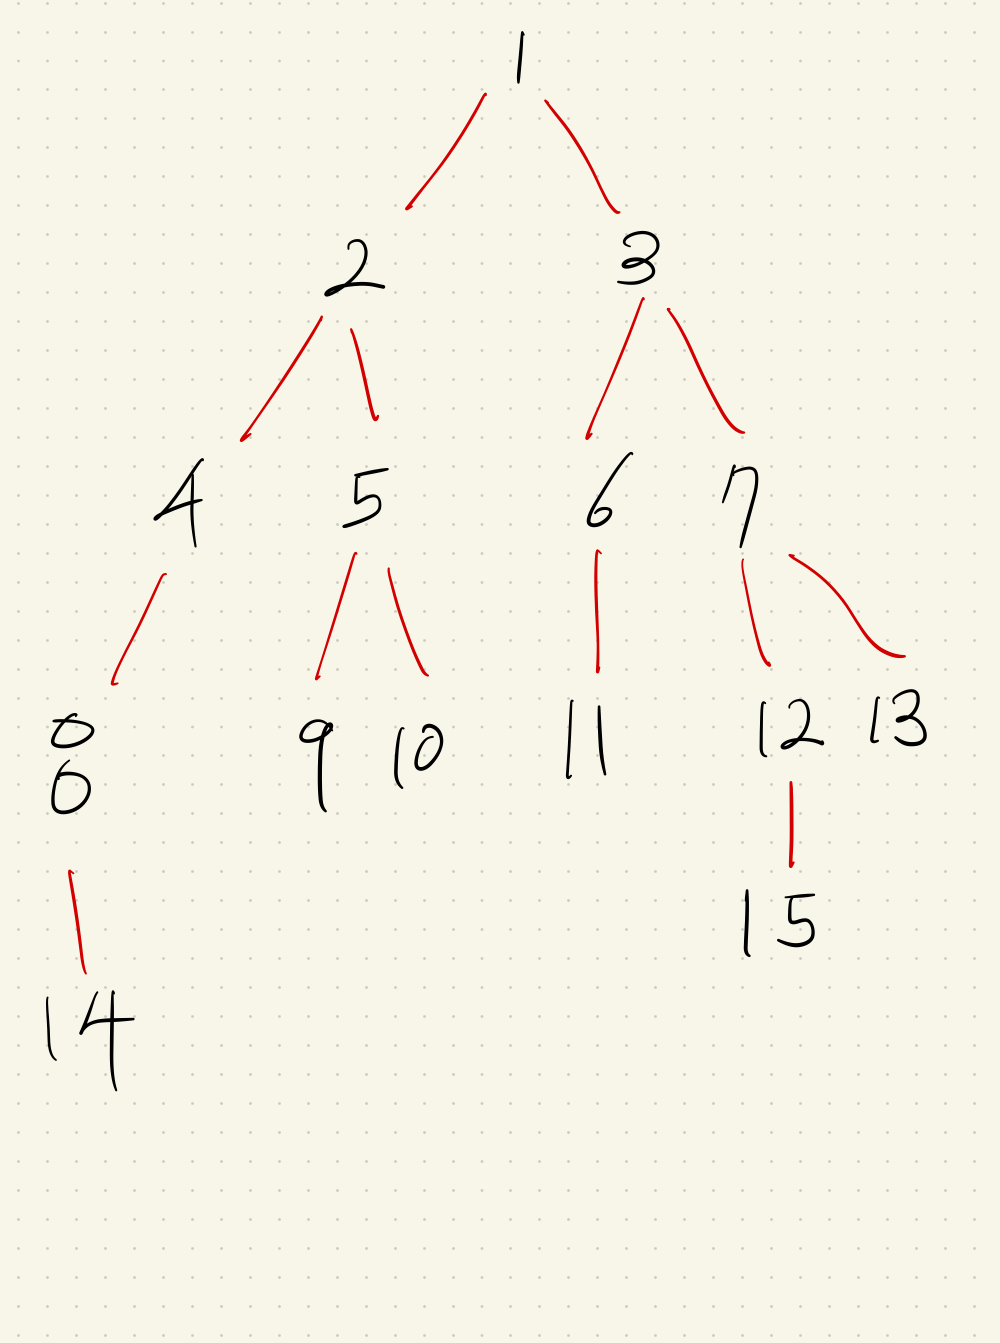 1
2 3
4 5 6 7
8 9 10 11 12 13
15
14